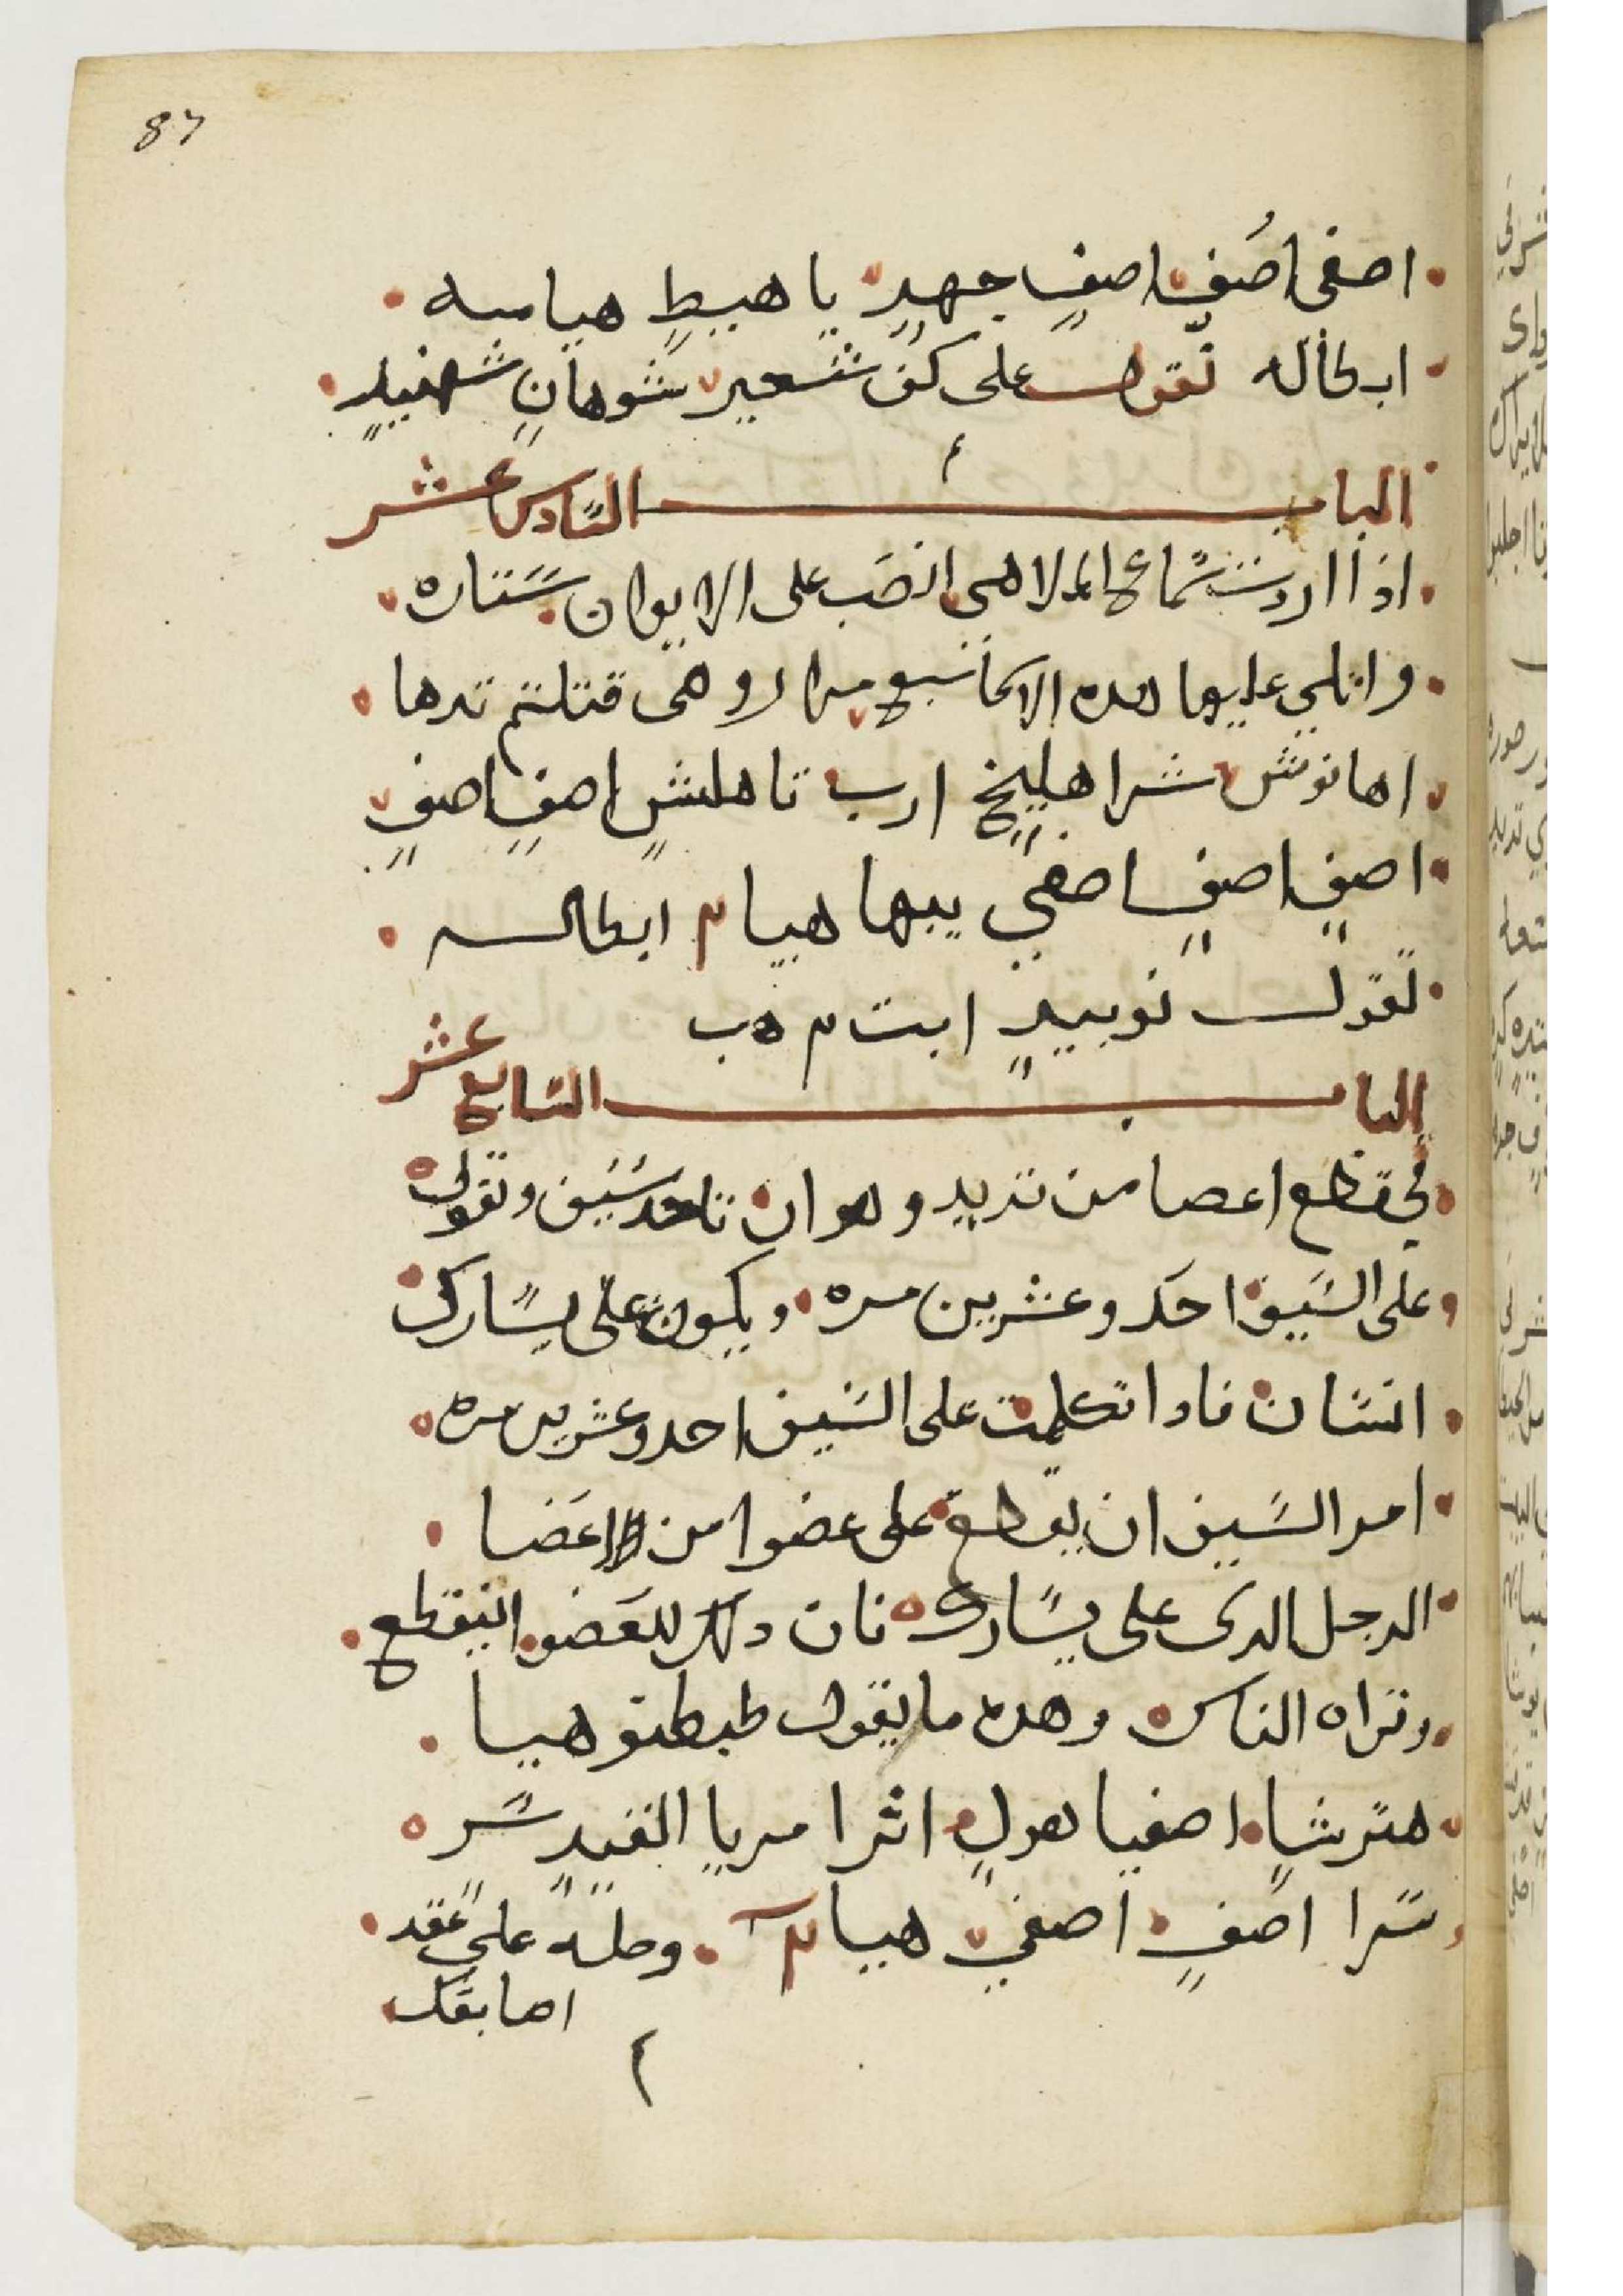 87
اصفى اصف اصف جهد يا هبيط هياميه
ابطاله تقول على كف شعير شوهان شهنيد
الباب السادس عشر
اذا اردت سماع الملاهى انصب على الايوان ستاره
واتلي عليها هده الاسما سبع مرار وهى قتلتم تدها
اهانوش شراهليخ ارب تاهلش اصف اصف
اصف اصف اصفي يبها هيا م ابطاله
تقول نوبيد ابت م هب
الباب السابع عشر
في قطع اعصا من تريد وهو ان تاخد سيف وتقول
على السيف احد وعشرين مره ويكون على يسارك
انسان فادا تكلمت على السيف احد وعشرين مره
امر السيف ان يقطع على عضوا من اعضا
الرجل الدى على يسارك فان دلك العضو انيقطع
وتراه الناس وهده ما يقول طبطنو هيا
هترشا اصفيا هول اثرا مريا الفنيد سر
سرا اصف اصفي هيا م وحله على عقد
اصابعك